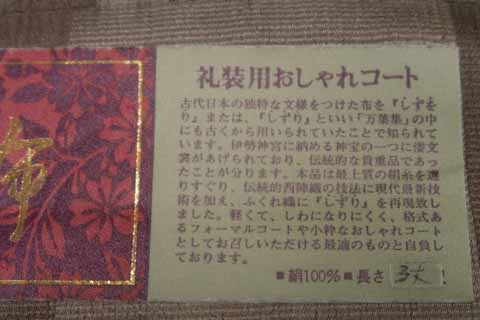 礼装用おしゃれコート
古代日本の独特な文様をつけた布を『しずを
り』または、『しずり』といい「万葉集」の中
にも古くから用いられていたことで知られて
います。伊勢神宮に納める神宝の一つに倭文
裳があげられており、伝統的な貴重品であっ
たことが分ります。本品は最上質の絹糸を選
りすぐり、伝統的西陣織の技法に現代最新技
術を加え、ふくれ織に『しずり』を再現致し
ました。軽くて、しわになりにくく、格式あ
るフォーマルコートや小粋なおしゃれコート
としてお召しいただける最適のものと自負し
ております。
■絹100%■長さ 3丈
布